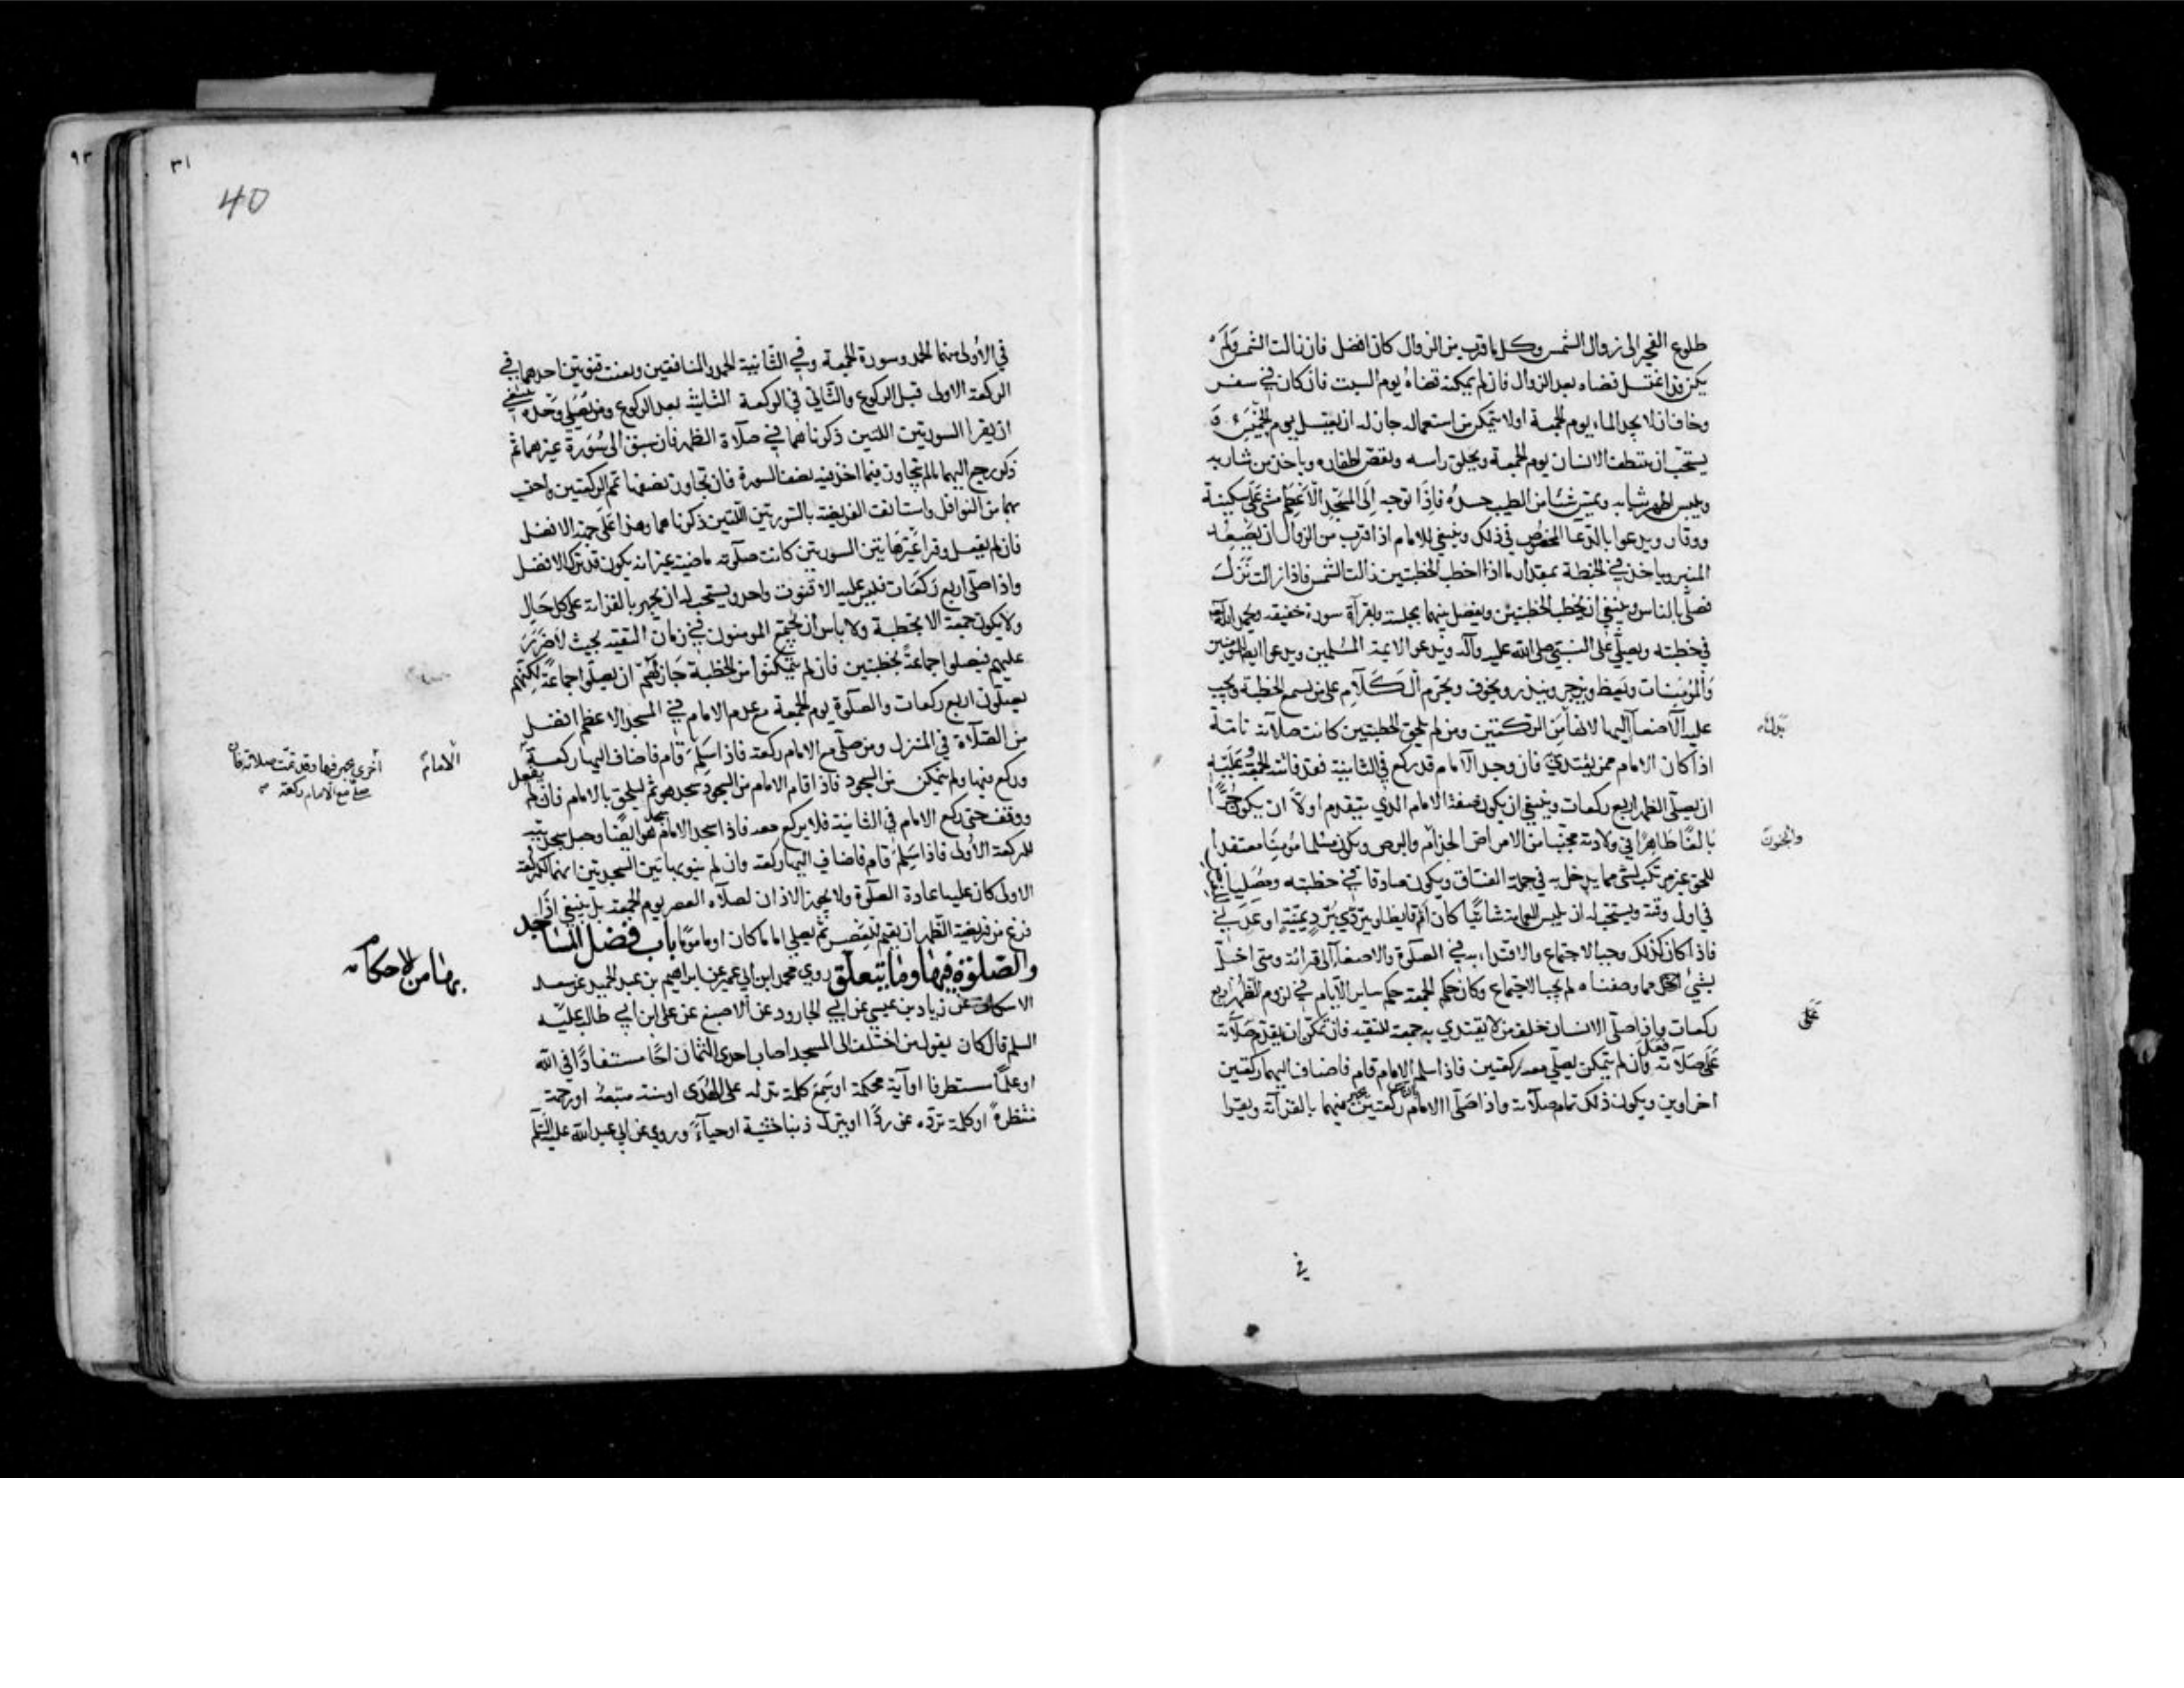 طلوع الفجر الى زوال الشمس وكلما قرب من الزوال كان افضل فان زالت الشمس ولم
يكن قد اغتسل قضاه بعد الزوال فان لم يمكنه قضاه يوم السبت فان كان في سفر
وخاف ان لا يجد الماء يوم الجمعة او لا يتمكن من استعماله جاز له ان يغتسل يوم الخميس و
يستحب ان يتنظف الانسان يوم الجمعة ويحلق راسه ويقص اظفاره وياخذ من شاربه
ويلبس اطهر ثيابه ويمس شيئا من الطيب جسده فاذا توجه الى المسجد الاعظم مشى على سكينة
ووقار ويدعوا بالدعا المخصوص في ذلك وينبغي للامام اذا قرب من الزوال ان يصعد
المنبر وياخذ في الخطبة بمقدار ما اذا خطب الخطبتين زالت الشمس فاذا زالت نزل
فصلى بالناس وينبغي ان يخطب الخطبتين ويفصل بينهما بجلسة وبقرآة سورة خفيفة ويحمد الله
في خطبته ويصلي على النبي صلى الله عليه وآله ويدعو الائمة المسلمين ويدعوا ايضا للمؤمنين
والمؤمنات ويعظ ويزجر وينذر ويخوف ويحرم الكلام على من يسمع الخطبة ويجب
عليه الاصغاء اليها لانها من الركعتين ومن لم يلحق الخطبتين كانت صلاته تامة
بدل
اذا كان الامام ممن يقتدي به فان وجد الامام قد ركع في الثانية فقد فاتته الجمعة وعليه
ان يصلي الظهر اربع ركعات وينبغي ان يكون صفة الامام الذي يتقدم اولا ان يكون حرا
بالغا طاهرا في ولادته مجنبا من الامراض الجذام والبرص ويكون مسلما مؤمنا معتقدا
والجنون
للحق غير مرتكب لشي مما يدخل به في جملة الفساق ويكون صادقا في خطبته ومصليا للفرض
في اول وقته ويستحب له ان يلبس العمامة شاتيا كان ام قايظا ويتردي ببرد يمنية او عدني
فاذا كان كذلك وجب الاجتماع والاقتداء به في الصلوة والاصغاء الى قرائته ومتى اخل
بشي مما وصفناه لم يجب الاجتماع وكان حكم الجمعة حكم ساير الايام في لزوم الظهر اربع
على
ركعات واذا صلى الانسان خلف من لا يقتدي به جمعة للتقية فان تمكن ان يقدم صلاته
على صلاته فعل وان لم يتمكن يصلي معه ركعتين فاذا سلم الامام قام فاضاف اليها ركعتين
اخراوين ويكون ذلك تمام صلاته واذا صلى الامام بالناس ركعتين يجهر فيهما بالقرآة ويقرا
في
٩٢
٣١
40
في الأولى منهما الحمد وسورة الجمعة وفي الثانية الحمد والمنافقين ويقنت قنوتين احدهما في
الركعة الاولى قبل الركوع والثاني في الركعة الثانية بعد الركوع ومن يصلي وحده ينبغي
ان يقرا السورتين اللتين ذكرناهما في صلاة الظهر فان سبق الى سورة غيرهما ثم
ذكر رجع اليهما ما لم يتجاوز فيما اخذ فيه نصف السورة فان تجاوز نصفها تمم الركعتين واحتسب
بهما من النوافل واستانف الفريضة بالسورتين اللتين ذكرناهما وهذا على جهة الافضل
فان لم يفعل وقرا غير هاتين السورتين كانت صلوته ماضية غير انه يكون قد ترك الافضل
واذا صلى اربع ركعات فليس عليه الا قنوت واحد ويستحب له ان يجهر بالقراة على كل حال
ولا يكون جمعة الا بخطبة ولا باس ان يجتمع المومنون في زمان التقية بحيث لا ضرر
عليهم فيصلوا جماعة بخطبتين فان لم يتمكنوا من الخطبة جاز لهم ان يصلوا جماعة لكنهم
يصلون اربع ركعات والصلوة يوم الجمعة مع عدم الامام في المسجد الاعظم افضل
من الصلاة في المنزل ومن صلى مع الامام ركعة فاذا سلم قام فاضاف اليها ركعة
الامام
أخرى يجهر فيها وقد تمت صلاته فان
صلى مع الامام ركعة
وركع فيها ولم يتمكن من السجود فاذا قام الامام من السجود سجد هو ثم ليلحق بالامام فان لم يفعل
ووقف حتى ركع الامام في الثانية فلا يركع معه فاذا سجد الامام سجد هو ايضا وجعل سجدتيه
للركعة الأولى فاذا سلم قام فاضاف اليها ركعة وان لم ينو بهاتين السجدتين انهما للركعة
الاولى كان عليه اعادة الصلوة ولا يجوز الاذان لصلاة العصر يوم الجمعة بل ينبغي اذا
فرغ من فريضة الظهر ان يقيم للعصر ثم يصلي اماما كان او ماموما باب فضل المساجد
والصلوة فيها وما يتعلق روي محمد ابن ابي عمير عن ابراهيم بن عبد الحميد عن سعد
بها من الاحكام
الاسكاف عن زياد بن عيسى عن ابي الجارود عن الاصبغ عن علي ابن ابي طالب عليه
السلم قال كان يقول من اختلف الى المسجد اصاب احدى الثمان اخا مستفادا في الله
او علما مستطرفا او آية محكمة او يسمع كلمة تدله على الهدى او سنة متبعة او رحمة
منتظرة او كلمة تردة عن ردًا او يترك ذنبا خشية او حياءً وروي عن ابي عبد الله عليه السلم